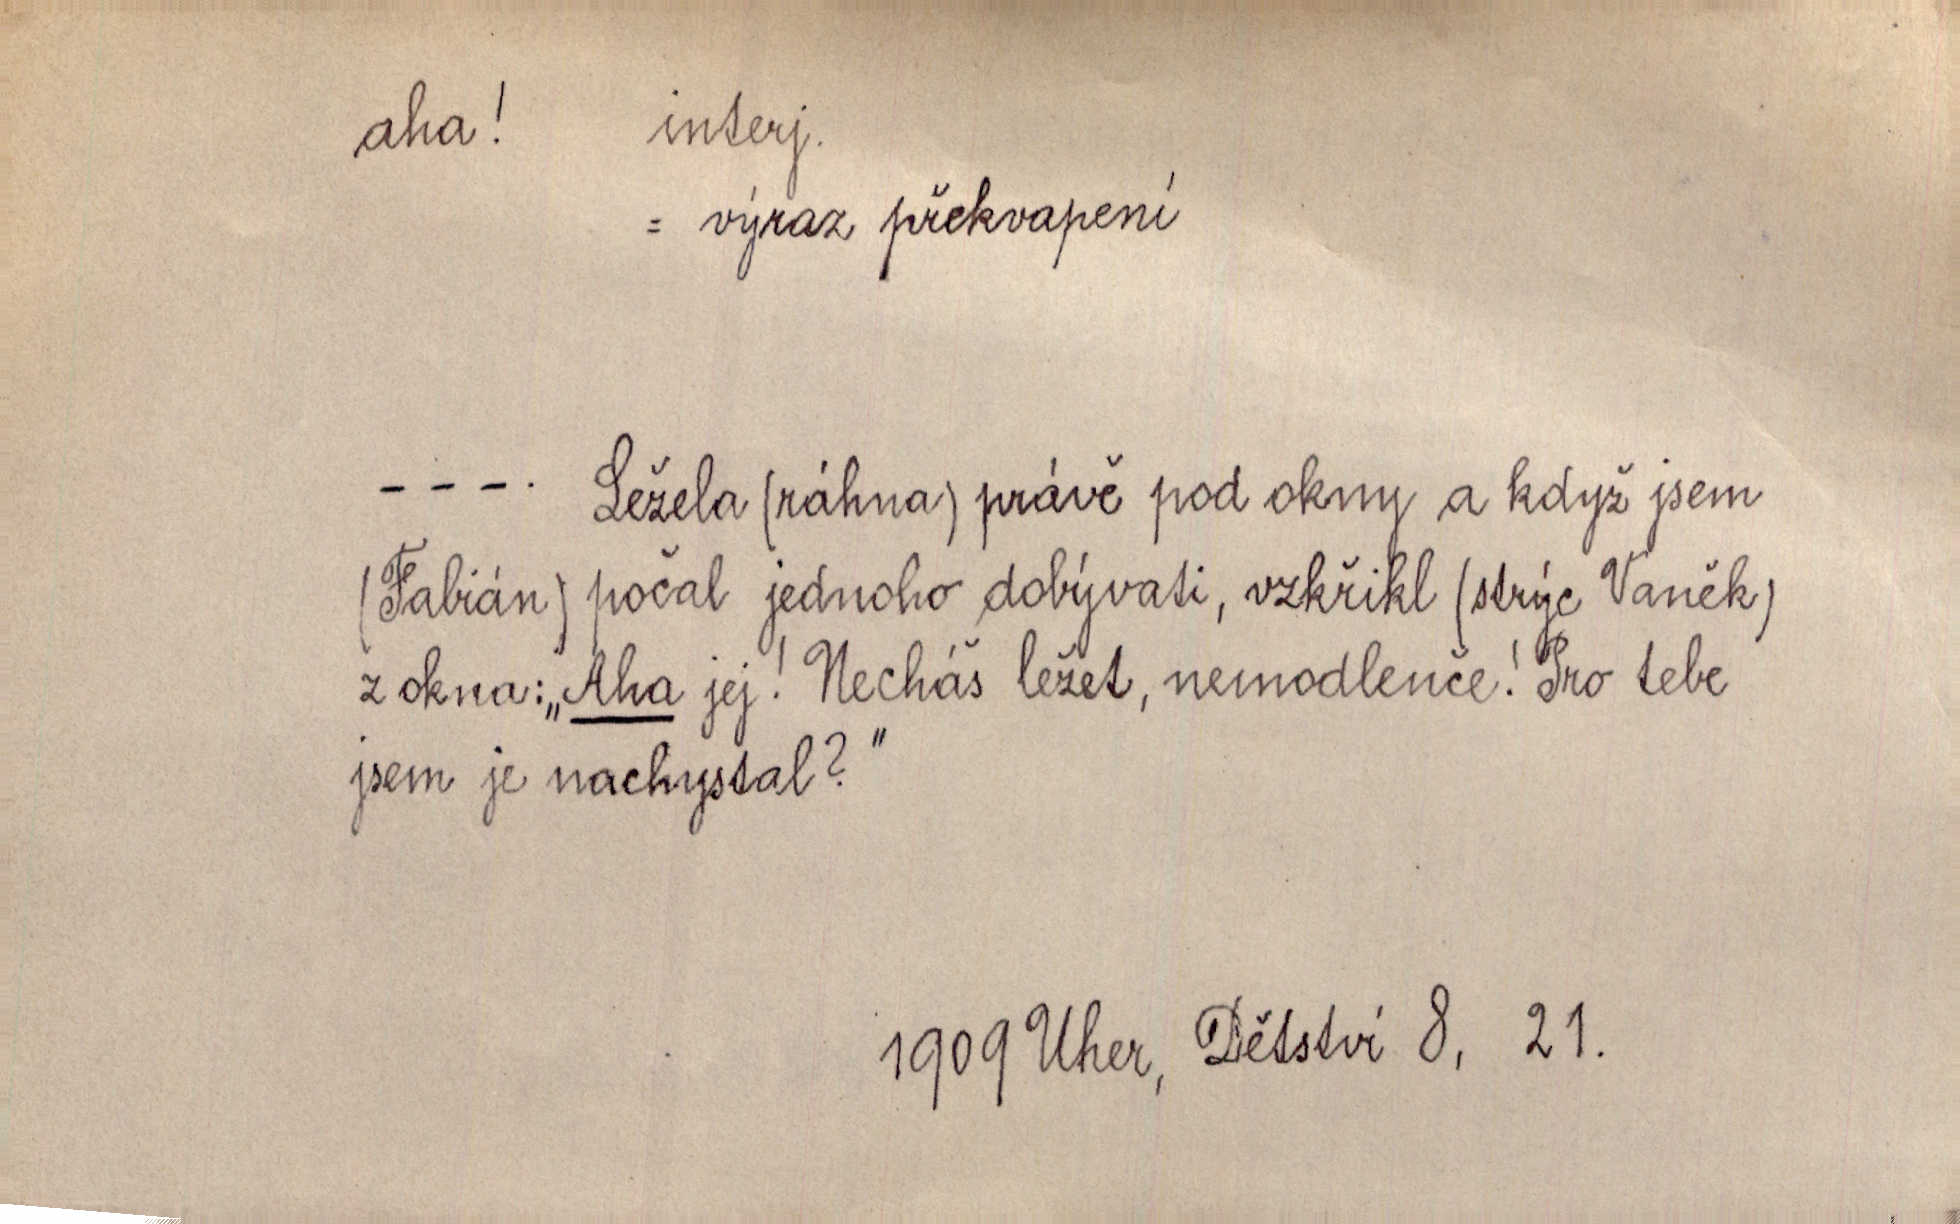 aha! interj.
= výraz překvapení
- - - . Ležela (ráhna) právě pod okny a když jsem
(Fabián) počal jednoho dobývati, vzkřikl (strýc Vaněk)
z okna: „Aha jej! Necháš ležet, nemodlenče! Pro tebe
jsem je nachystal?"
1909 Uher, Dětství 8, 21.